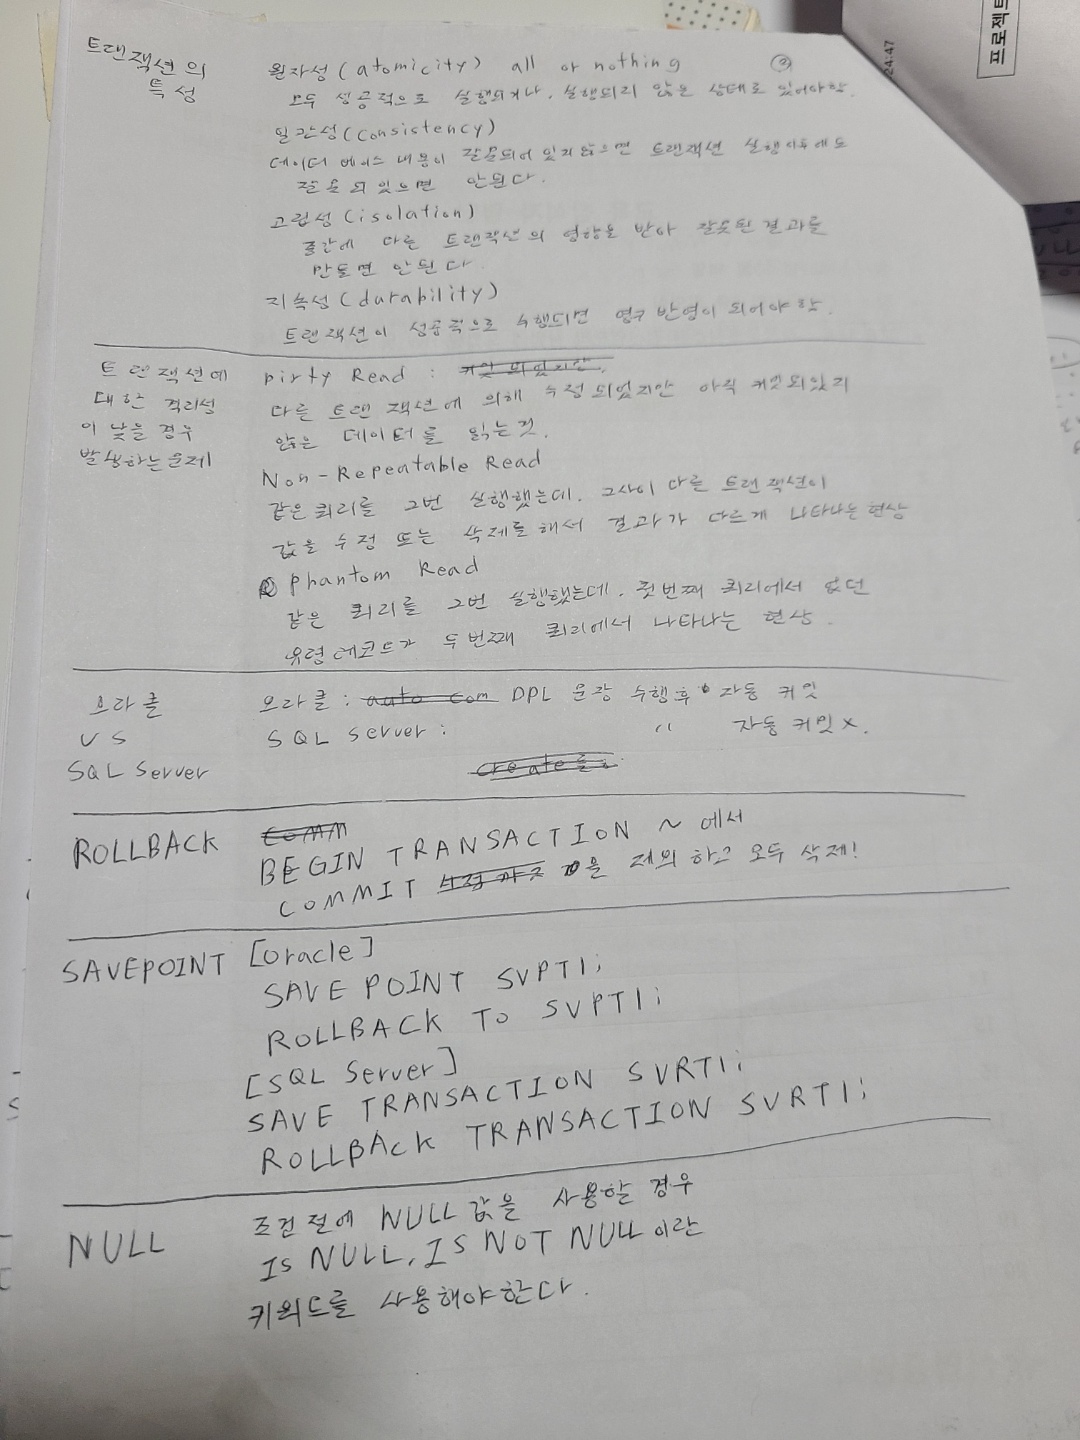 트랜잭션의
특성
원자성(atomicity) all or nothing ③
모두 성공적으로 실행되거나, 실행되지 않은 상태로 있어야함.
일관성(consistency)
데이터 베이스 내용이 잘못되어 있지 않으면 트랜잭션 실행이후에도
잘못 되 있으면 안된다.
고립성(isolation)
중간에 다른 트랜잭션의 영향을 받아 잘못된 결과를
만들면 안된다
지속성(durability)
트랜잭션이 성공적으로 수행되면 영구 반영이 되어야 함.
트랜잭션에
대한 격리성
이 낮을 경우
발생하는문제
Dirty Read : 커밋 되었지만,
다른 트랜잭션에 의해 수정 되었지만 아직 커밋되있지
않은 데이터를 읽는것.
Non-Repeatable Read
같은쿼리를 2번 실행했는데. 그사이 다른 트랜잭션이
값을 수정 또는 삭제를 해서 결과가 다르게 나타나는현상
Phantom Read
같은 쿼리를 2번 실행했는데. 첫번째 쿼리에서 없던
유령레코드가 두번째 쿼리에서 나타나는 현상.
오라클
VS
SQL Server
오라클 : auto com DPL 문장 수행후 자동 커밋
SQL Server : 〃 자동 커밋 X.
create를
ROLLBACK
COMM
BEGIN TRANSACTION ~ 에서
COMMIT 을 제외 하고 모두 삭제!
SAVEPOINT
[Oracle]
SAVE POINT SVPT1;
ROLLBACK TO SVPT1;
[SQL Server]
SAVE TRANSACTION SVRT1;
ROLLBACK TRANSACTION SVRT1;
NULL
조건절에 NULL 값을 사용할 경우
IS NULL, IS NOT NULL 이란
키워드를 사용해야한다.
프로젝트
24:47